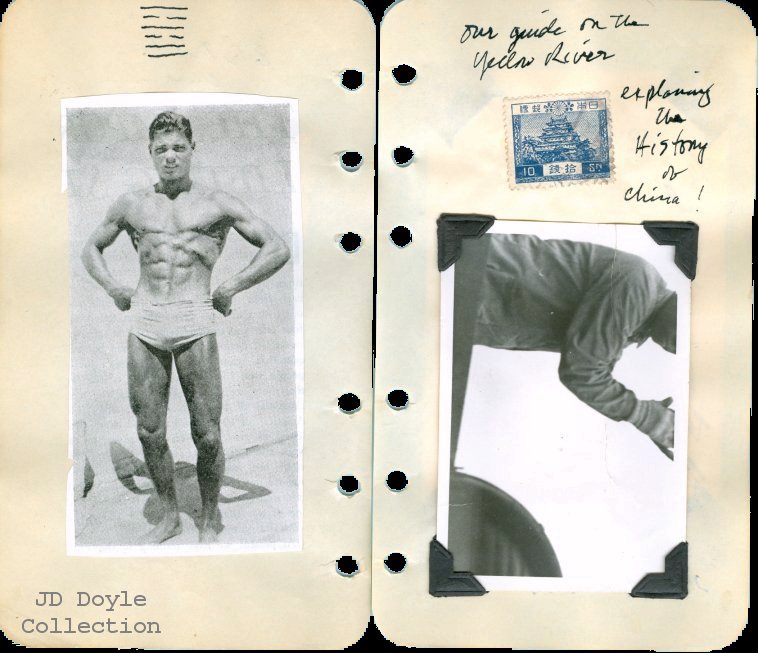 our guide on the
Yellow River
explaining
the
History
of
China!
日本郵便
10 銭拾 Sn
JD Doyle
Collection